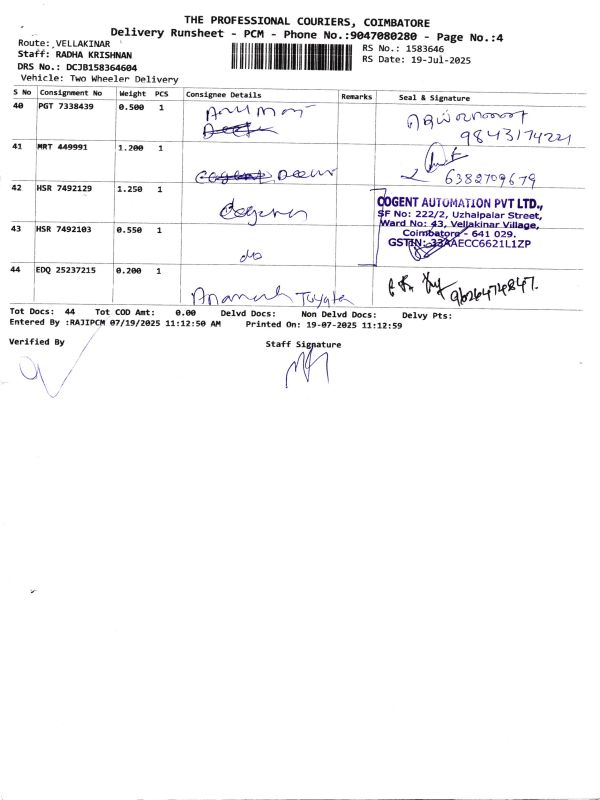 THE PROFESSIONAL COURIERS, COIMBATORE
Delivery Runsheet - PCM - Phone No.:9047080280 - Page No.:4
Route: VELLAKINAR
RS No.: 1583646
Staff: RADHA KRISHNAN
RS Date: 19-Jul-2025
DRS No.: DCJB158364604
Vehicle: Two Wheeler Delivery
S No Consignment No Weight PCS Consignee Details Remarks Seal & Signature
40 PGT 7338439 0.500 1
9843174221
41 MRT 449991 1.200 1
6382709679
42 HSR 7492129 1.250 1
COGENT AUTOMATION PVT LTD.,
SF No: 222/2, Uzhaipalar Street,
Ward No: 43, Vellakinar Village,
Coimbatore - 641 029.
GSTIN: 33AAECC6621L1ZP
43 HSR 7492103 0.550 1
do
44 EDQ 25237215 0.200 1
Tot Docs: 44 Tot COD Amt: 0.00 Delvd Docs: Non Delvd Docs: Delvy Pts:
Entered By :RAJIPCM 07/19/2025 11:12:50 AM Printed On: 19-07-2025 11:12:59
Verified By
Staff Signature